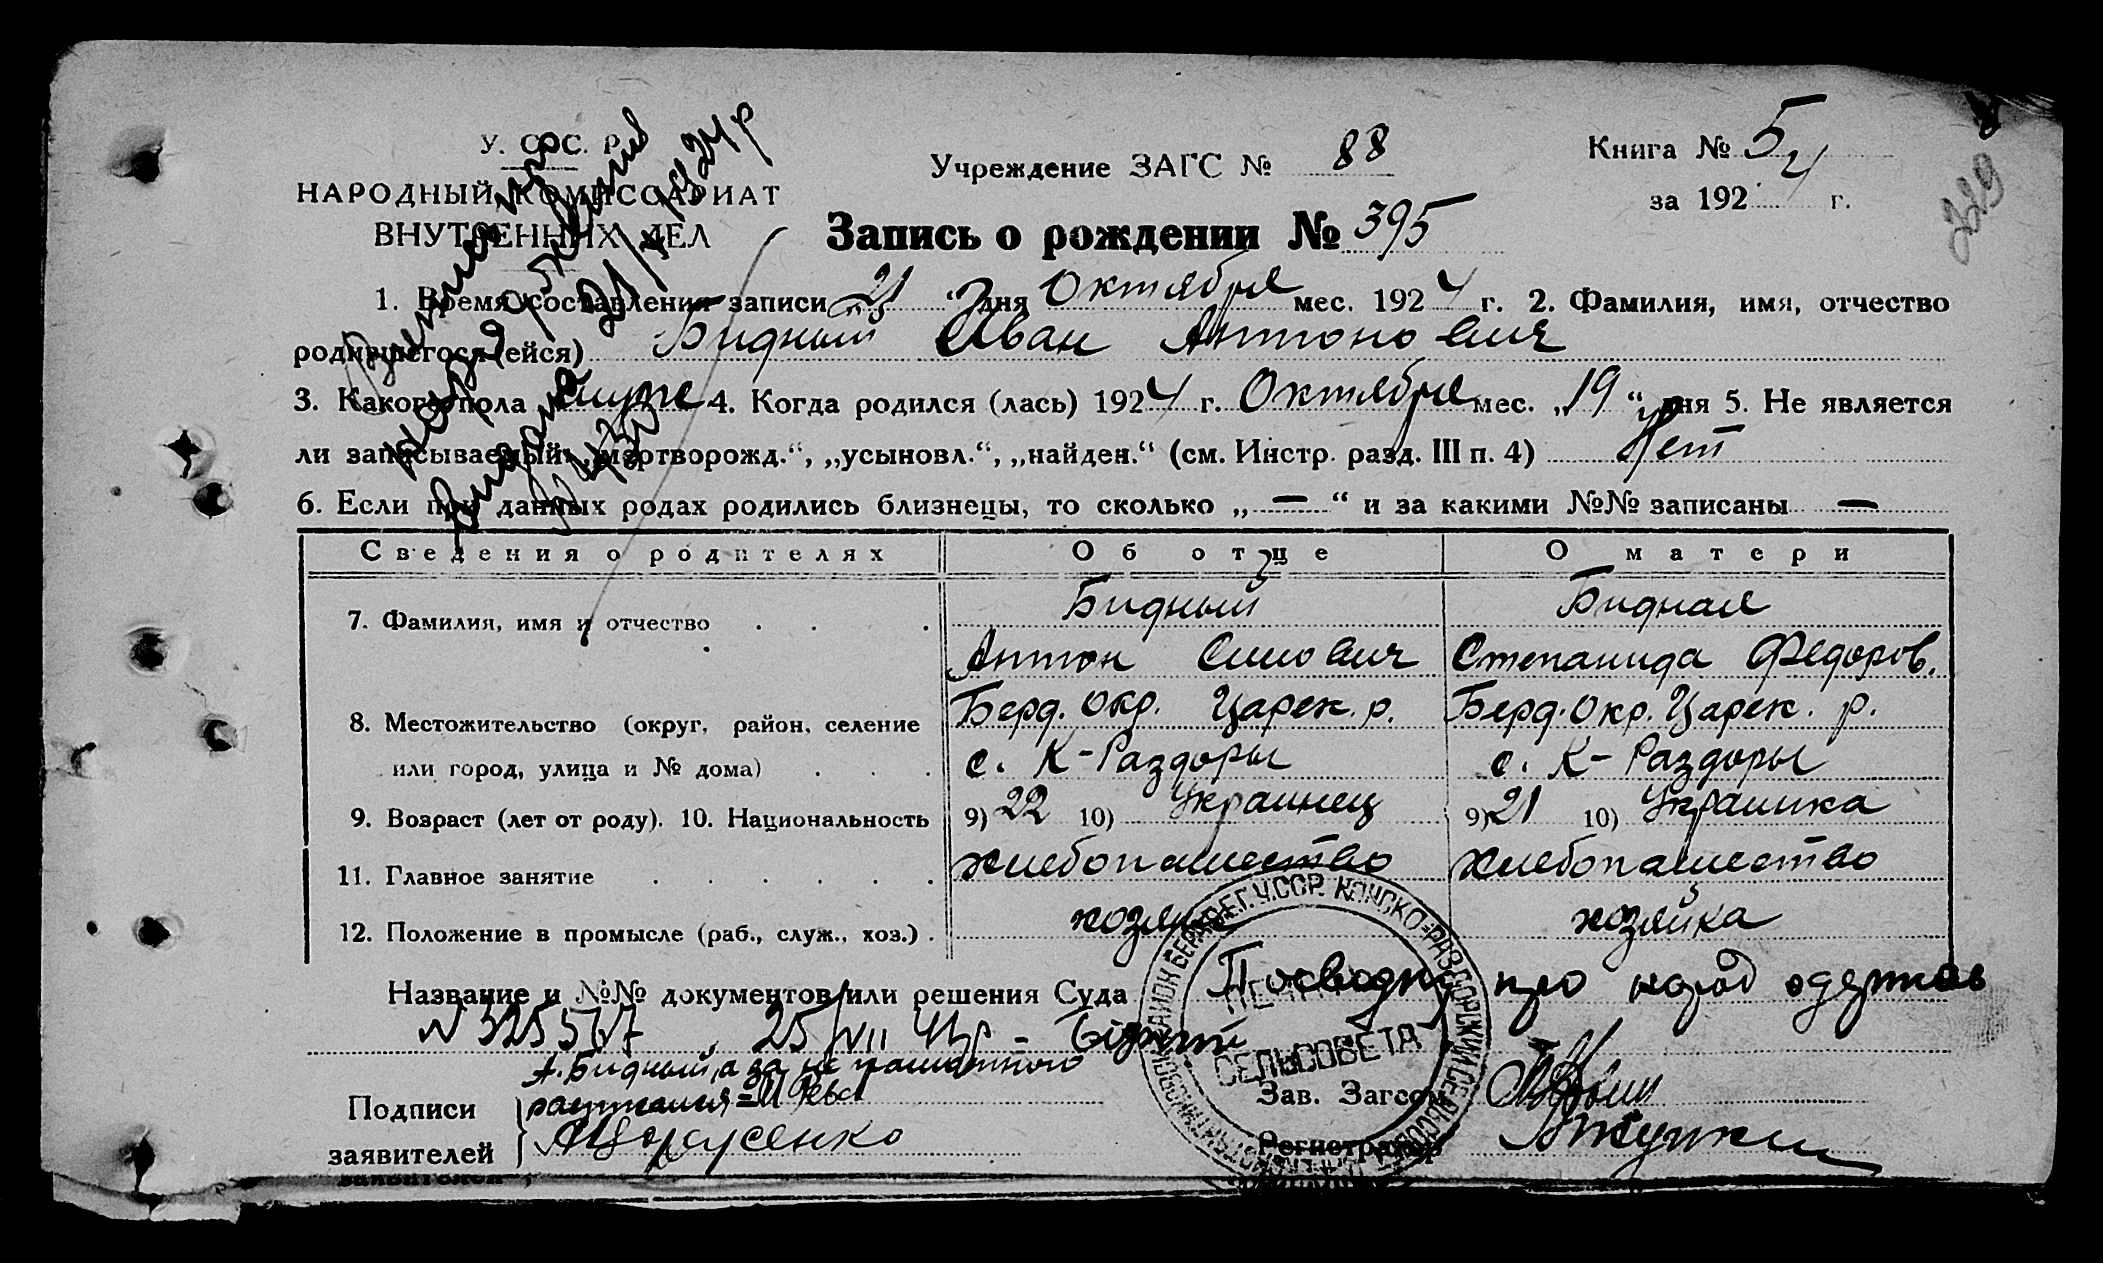 У. С. С. Р.
НАРОДНЫЙ КОМИССАРИАТ
ВНУТРЕННИХ ДЕЛ
Учреждение ЗАГС № 88
Книга № 5
за 1924 г.
219
Запись о рождении № 395
1. Время составления записи 21 " дня Октября мес. 1924 г. 2. Фамилия, имя, отчество
родившегося (ейся) Бидный Иван Антонович
3. Какого пола муж. 4. Когда родился (лась) 1924 г. Октября мес. „19 “ дня 5. Не является
ли записываемый: „мертворожд.“, „усыновл.“, „найден.“ (см. Инстр. разд. III п. 4) Нет
6. Если при данных родах родились близнецы, то сколько „ — “ и за какими №№ записаны —
Сведения о родителях Об отце О матери
7. Фамилия, имя и отчество Бидный Бидная
Антон Симович Степанида Федоров.
8. Местожительство (округ, район, селение Берд. Окр. Царек. р. Берд. Окр. Царек. р.
или город, улица и № дома) с. К-Раздоры с. К-Раздоры
9. Возраст (лет от роду). 10. Национальность 9) 22 10) Украинец 9) 21 10) Украинка
11. Главное занятие хлебопашество хлебопашество
12. Положение в промысле (раб., служ., хоз.) хозяин хозяйка
Название и №№ документов или решения Суда Посвідку про народ одержав
N 325567, 25/VII 41р - Бідний
А. Бидный, а за не грамотного
Подписи расписался
заявителей
Зав. Загсом
Регистратор
ПЕЧАТЬ
СЕЛЬСОВЕТА